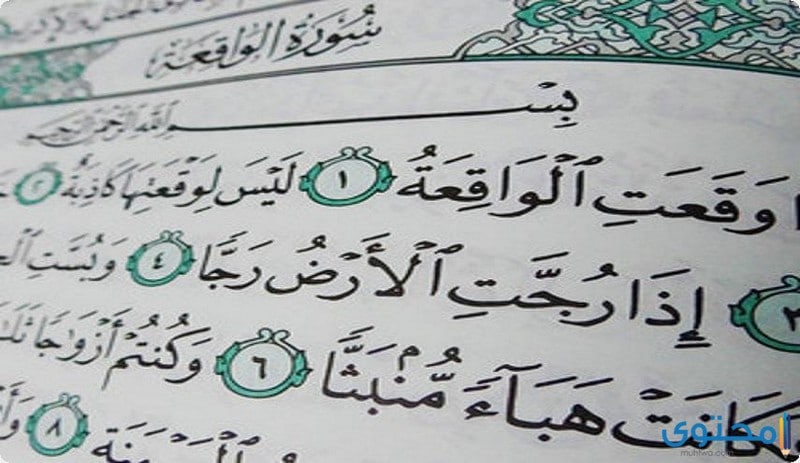 سُورَةُ الوَاقِعَةِ
بِسْمِ اللَّهِ الرَّحْمَٰنِ الرَّحِيمِ
وَقَعَتِ ٱلْوَاقِعَةُ ١ لَيْسَ لِوَقْعَتِهَا كَاذِبَةٌ ٢
٣ إِذَا رُجَّتِ ٱلْأَرْضُ رَجًّا ٤ وَبُسَّتِ
كَانَتْ هَبَآءً مُّنۢبَثًّا ٦ وَكُنتُمْ أَزْوَٰجًا
ٱلْمَيْمَنَةِ ٨
محتوى
muhtwa.com